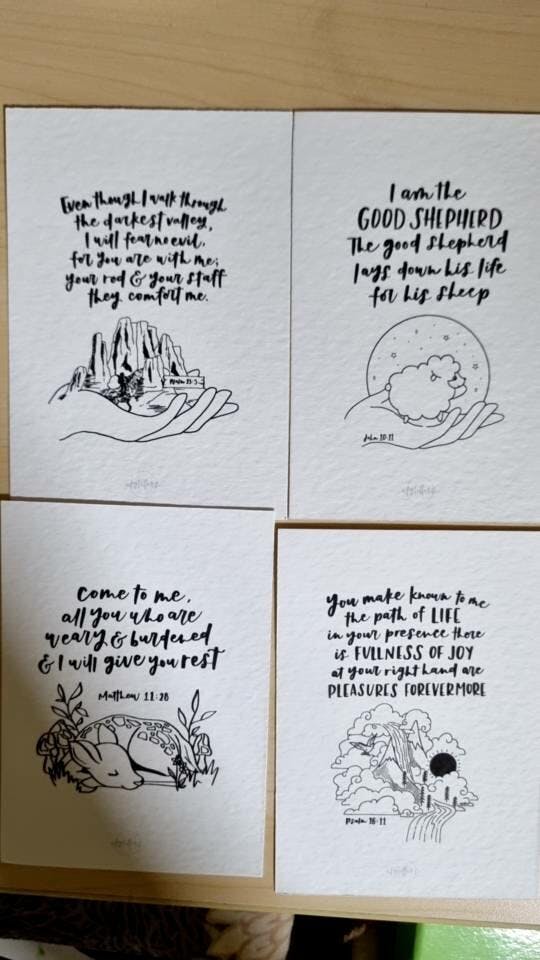 Even though I walk through
the darkest valley,
I will fear no evil,
for you are with me;
your rod & your staff
they comfort me.
I am the
GOOD SHEPHERD
The good shepherd
lays down his life
for his sheep
John 10:11
Come to me,
all you who are
weary & burdened
& I will give you rest
Matthew 11:28
You make known to me
the path of LIFE
in your presence there
is FULLNESS OF JOY
at your right hand are
PLEASURES FOREVERMORE
Psalm 16:11